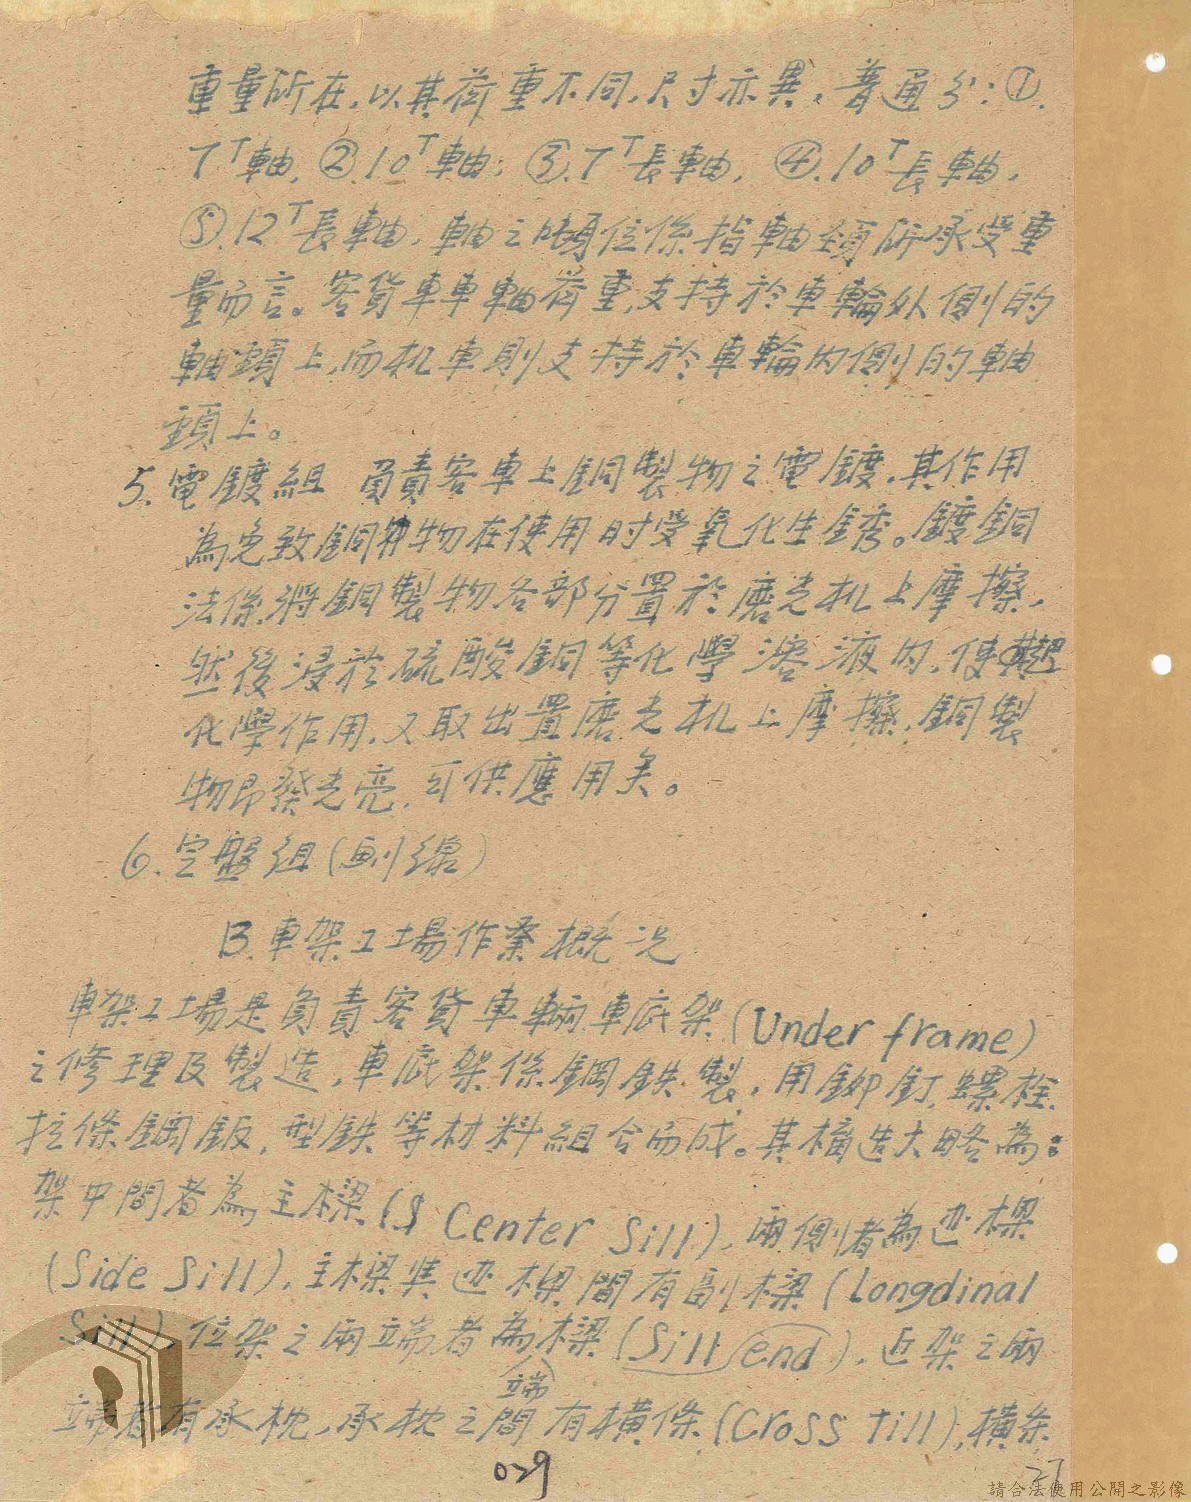 重量所在,以其荷重不同,尺寸亦異。普通分:①.
7ᵀ軸,②.10ᵀ軸;③.7ᵀ長軸,④.10ᵀ長軸,
⑤.12ᵀ長軸,軸之噸位係指軸頸所承受重
量而言。客貨車車軸荷重,支持於車輪外側的
軸頸上,而机車則支持於車輪內側的軸
頸上。
5.電鍍組 負責客車上銅製物之電鍍,其作用
為免致銅物在使用时受氧化生銹。鍍銅
法係將銅製物各部分置於磨光机上摩擦,
然後浸於硫酸銅等化學溶液內,使起
化學作用,又取出置磨光机上摩擦,銅製
物即發光亮,可供應用矣。
6.定盤組(劃線)
B.車架工場作業概況
車架工場是負責客貨車輛車底架(Under frame)
之修理及製造,車底架係鋼鉄製,用鉚釘,螺栓
拉條鋼鈑,型鉄等材料組合而成。其構造大略為:
架中間者為主樑(Center Sill),兩側者為边樑
(Side Sill),主樑與边樑間有副樑(Longdinal
Sill),位架之兩端者為樑(Sill end),近架之兩
(端)
端者有承枕,承枕之間有橫條(Cross till),橫条
029
27
請合法使用公開之影像